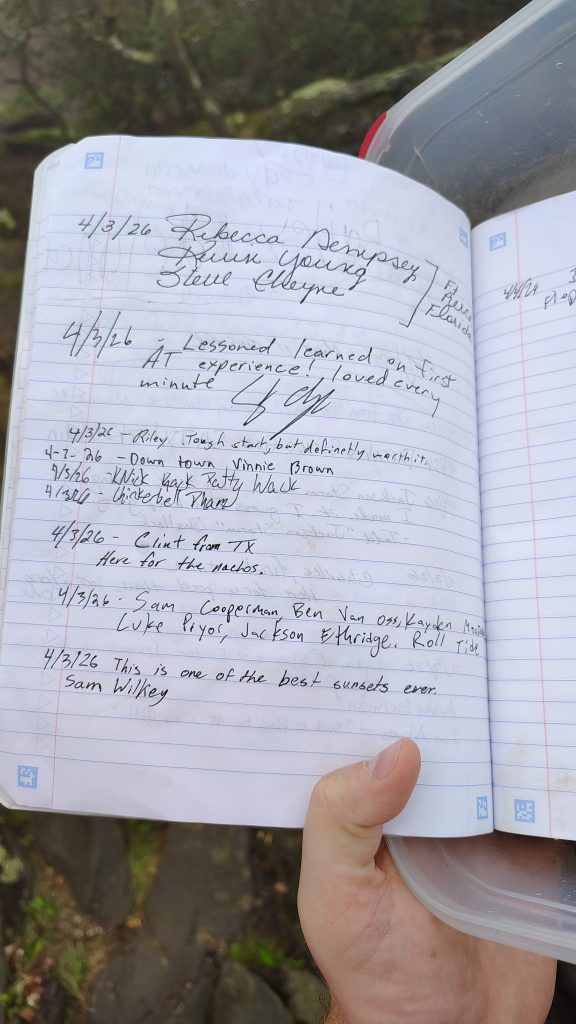 4/3/26 Rebecca Dempsey
Young
Steve Cheyne
Ft
Florida
4/3/26 - Lessoned learned on first
AT experience! loved every
minute
4/3/26 - Riley Tough start, but definetly worth it.
4-3-26 - Down town Vinnie Brown
4/3/26 - KNick Knack Patty Wack
4/3/26 - Chinkerbell
4/3/26 - Clint from TX
Here for the nachos.
4/3/26 - Sam Cooperman, Ben Van Oss, Kayden
Luke Pryor, Jackson Ethridge. Roll Tide
4/3/26 This is one of the best sunsets ever.
Sam Wilkey